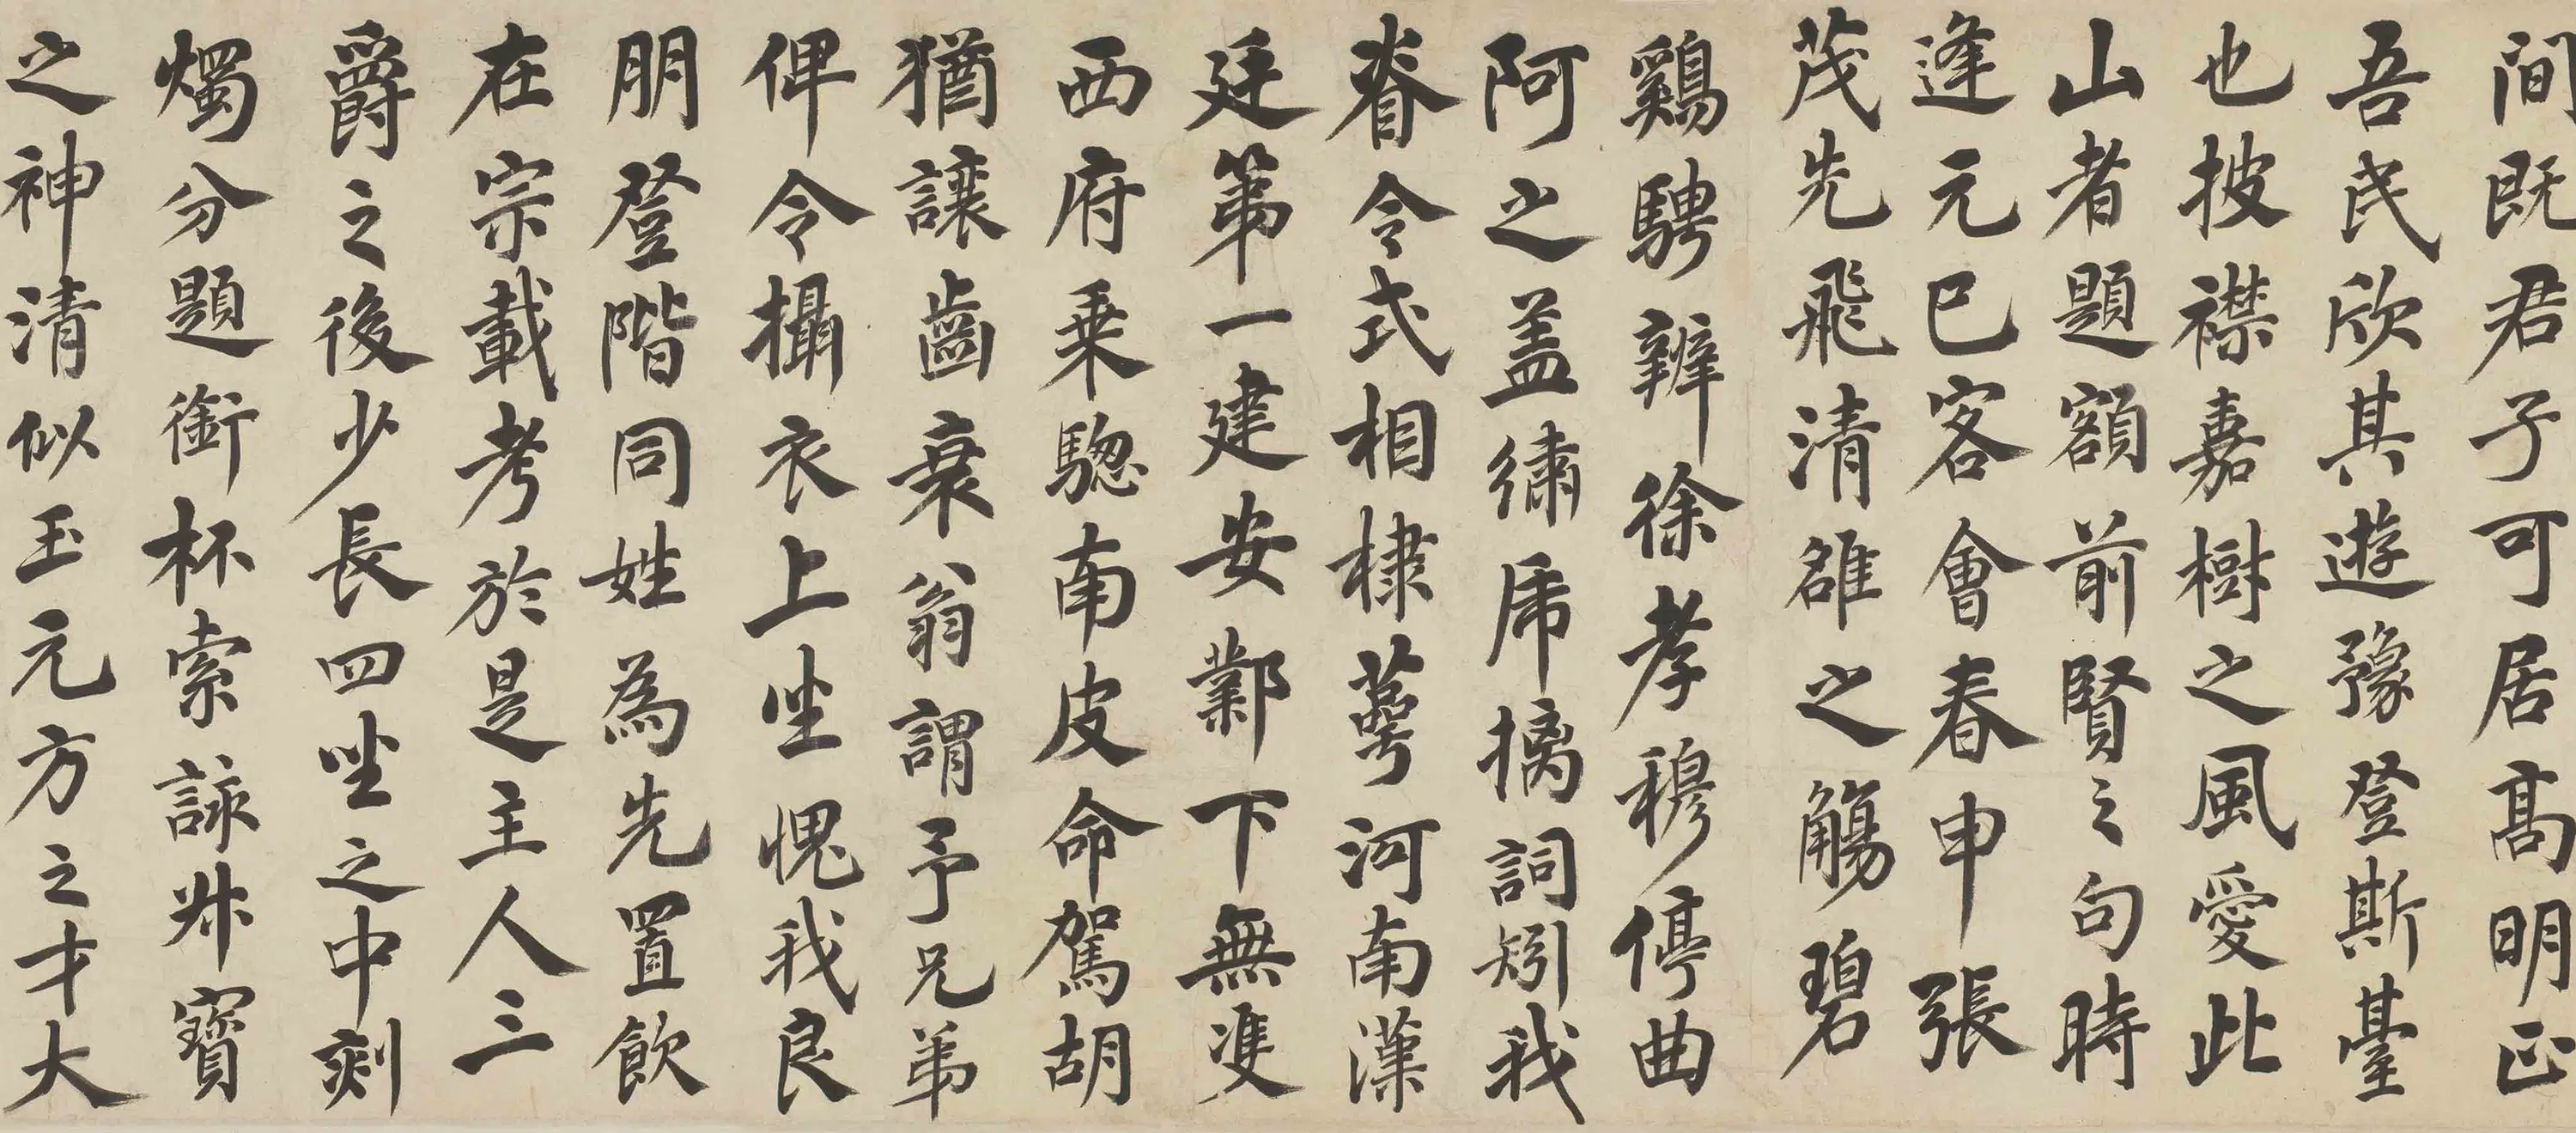 間既君子可居高明正
吾民欣其遊豫登斯臺
也披襟嘉樹之風愛此
山者題額前賢之句時
逢元巳客會春申張
茂先飛清雒之觴碧
鷄騁辨徐孝穆停曲
阿之盖繡虎摛詞矧我
眷令式相棣萼河南漢
廷第一建安鄴下無雙
西府乗騘南皮命駕胡
猶讓齒衰翁謂予兄弟
俾令攝衣上坐愧我良
朋登階同姓為先置飲
在宗載考於是主人三
爵之後少長四坐之中刻
燭分題銜杯索詠叔寶
之神清似玉元方之才大